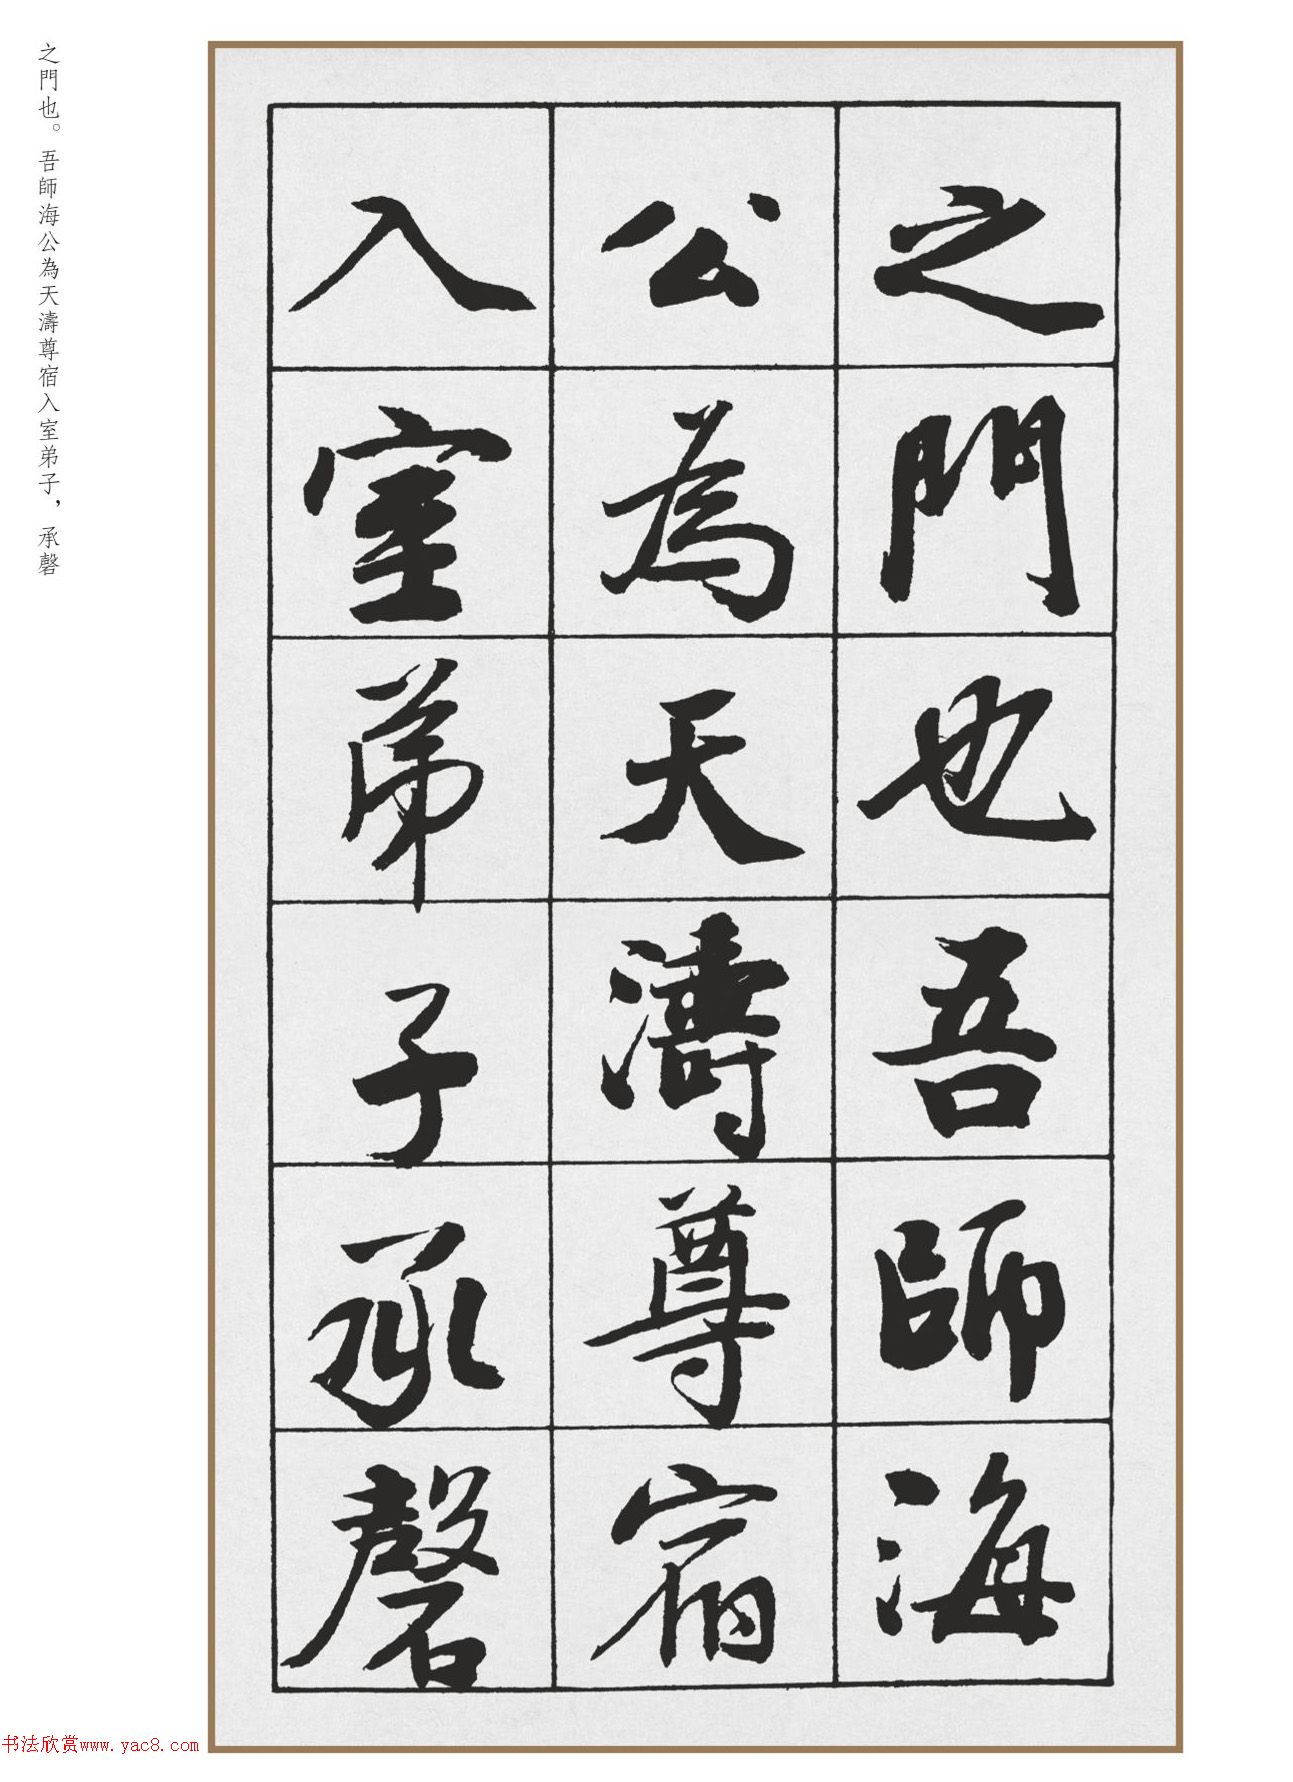 之門也吾師海
公為天濤尊宿
入室弟子承磬
之門也。吾師海公為天濤尊宿入室弟子，承磬
书法欣赏www.yac8.com